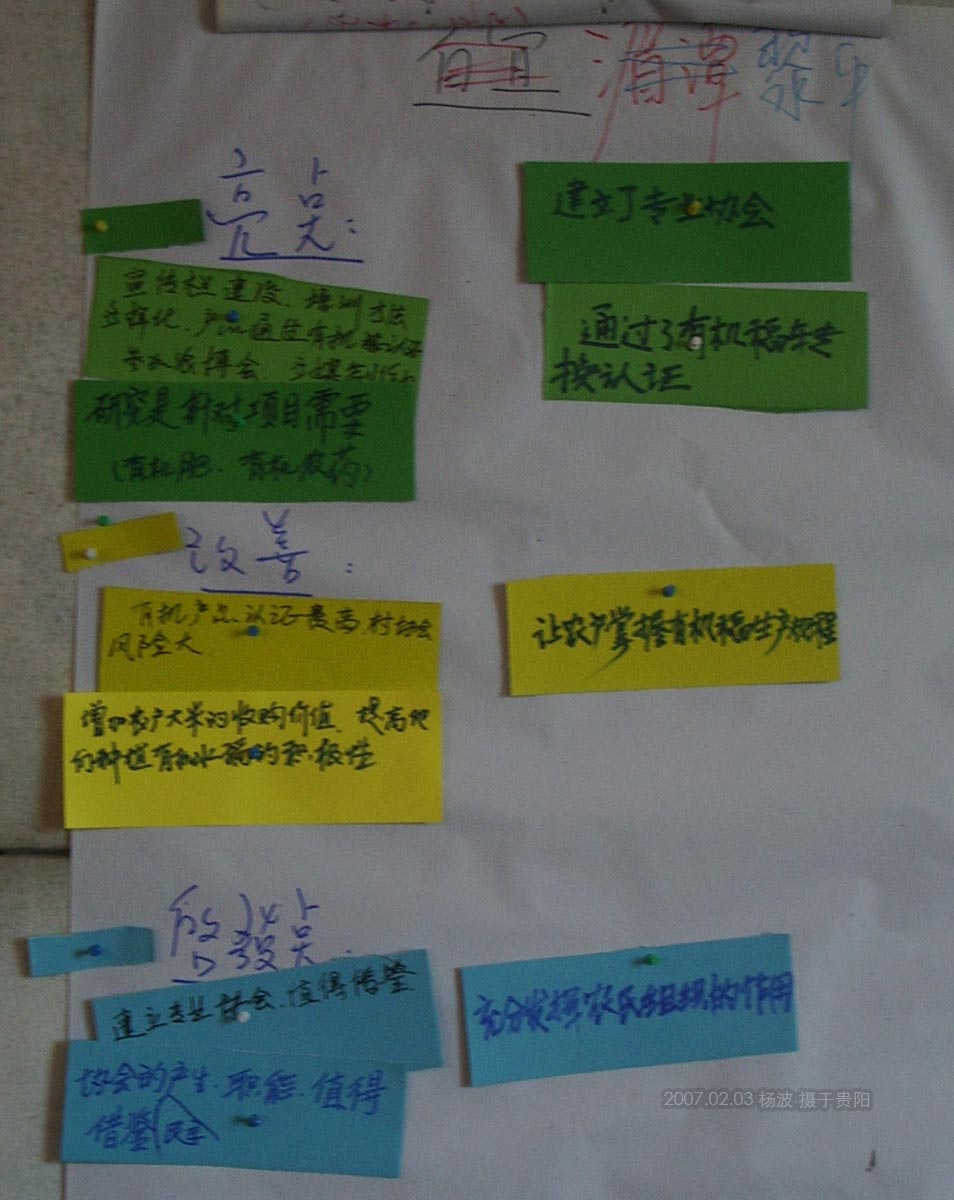 湄潭 黎平
亮点:
建立了专业协会
宣传栏建设、培训方法
多样化、产品通过有机转认证
参加农博会、
通过了有机稻米转
换认证
研究是针对项目需要
(有机肥、有机农药)
改善:
有机产品认证费高,村协会
风险大
让农户掌握有机稻生产规程
增加农户大米的收购价值、提高他
们种植有机水稻的积极性
启发点:
建立专业协会、值得借鉴
充分发挥农民组织的作用
协会的产生、职能、值得
借鉴(民主)
2007.02.03 杨波 摄于贵阳